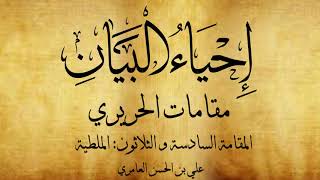 إِحْيَاءُ البَيَانِ
مقامات الحريري
المقامة السادسة و الثلاثون: الملطية
علي بن الحسن العامري